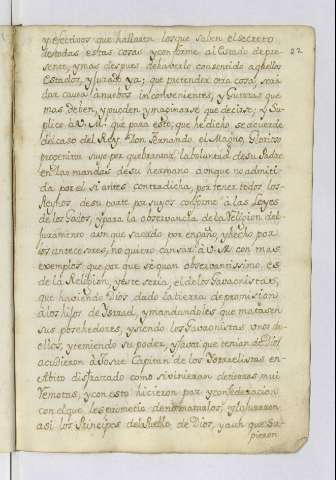 y efectivos que hallaran los que saben el secreto
de todas estas cosas y conforme al Estado de pre-
sente, y mas despues de haverlo consentido aquellos
Estados, y jurado ya; que pretender otra cosa, será
dar causa á nuebos inconvenientes, y Guerras que
mas deben, y pueden ymaginarse que decirse; y Su-
plico á V. M. que para esto, que he dicho se acuerde
del caso del Rey Don Fernando el Magno Glorioso
progenitor suyo por quebrantar la boluntad de su Padre
en las mandas de su hermano aunque no admiti-
da por el si antes contradicha, por tener todos los
Reynos de su parte por suyos conforme á las Leyes
de los Godos, y para la observancia de la Religion del
juramento aunque sacado por engaño, y hecho por
los antecesores, no quiero cansar á V. M. con mas
exemplos que por que sé quan observantissimo es
de la Religion, y este sería, el de los Gavaonistas,
que haviendo Dios dado la tierra de promision
á los hijos de Ysrael, y mandandoles que matasen
sus posehedores, y siendo los Gavaonistas unos de
ellos, y temiendo su poder, y favor que tenian de Dios
acudieron á Josue Capitan de los Ysraelistas en
Abito disfrazado como si vinieran de tierras mui
remotas, y con esto hicieron paz y confederacion
con el que les prometio de no matarlos, y lo juraron
asi los Principes del Pueblo de Dios, y aunque su-
pieron
22